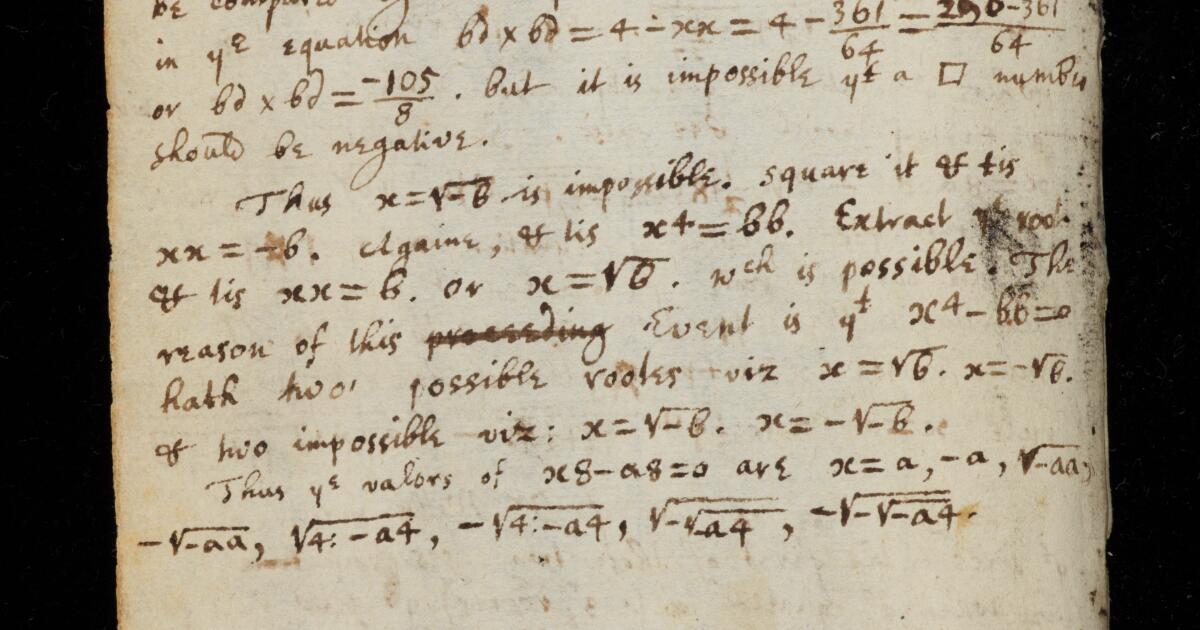 be compared
in yᵉ equation bd × bd = 4 - xx = 4 - 361/64 = 296-361/64
or bd × bd = -105/8. but it is impossible yᵗ a □ number
should be negative.
Thus x=√-b is impossible. square it & tis
xx = -b. Againe, & tis x4=bb. Extract yᵉ root
& tis xx = b. or x=√b. wᶜʰ is possible. The
reason of this proceeding Event is yᵗ x4-bb=0
hath two possible rootes viz x=√b. x=-√b.
& two impossible viz: x=√-b. x=-√-b.
Thus yᵉ valors of x8-a8=0 are x=a, -a, √-aa,
-√-aa, √4:-a4, -√4:-a4, √-√-a4, -√-√-a4.